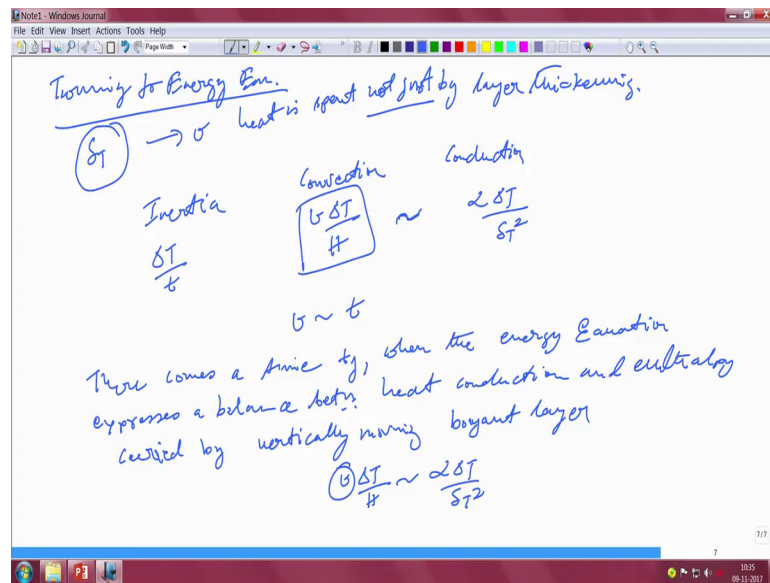 Note1 - Windows Journal
File Edit View Insert Actions Tools Help
Page Width
Turning to Energy Eqn.
δT → v heat is spent not just by layer thickening.
Inertia Convection Conduction
ΔT/t v ΔT/H ~ αΔT/δT²
v ~ t
There comes a time tf, when the energy Equation
expresses a balance betn. heat conduction and enthalpy
carried by vertically moving boyant layer
v ΔT/H ~ αΔT/δT²
7/7
7
10:35
09-11-2017